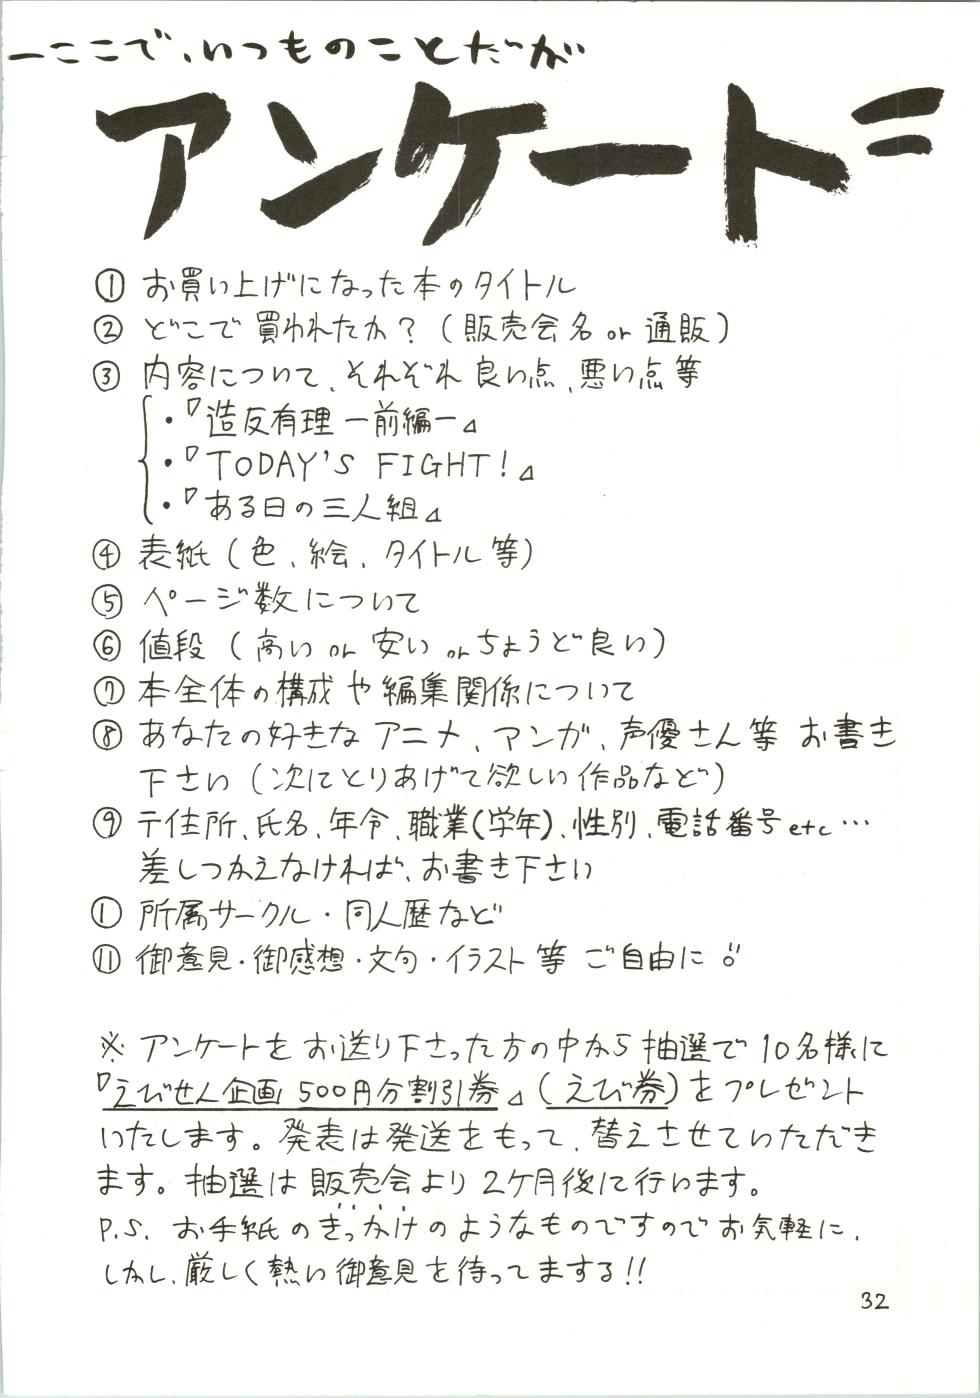 ーここで、いつものことだが
アンケート=
① お買い上げになった本のタイトル
② どこで買われたか？（販売会名 or 通販）
③ 内容について、それぞれ良い点、悪い点等
・『造反有理 ー前編ー』
・『TODAY'S FIGHT!』
・『ある日の三人組』
④ 表紙（色、絵、タイトル等）
⑤ ページ数について
⑥ 値段（高い or 安い or ちょうど良い）
⑦ 本全体の構成や編集関係について
⑧ あなたの好きなアニメ、マンガ、声優さん等 お書き
下さい（次にとりあげて欲しい作品など）
⑨ 〒住所、氏名、年令、職業（学年）、性別、電話番号etc…
差しつかえなければ、お書き下さい
① 所属サークル・同人歴など
⑪ 御意見・御感想・文句・イラスト等 ご自由に
※ アンケートをお送り下さった方の中から抽選で10名様に
『えびせん企画 500円分割引券』（えび券）をプレゼント
いたします。発表は発送をもって、替えさせていただき
ます。抽選は販売会より2ケ月後に行います。
P.S. お手紙のきっかけのようなものですのでお気軽に、
しかし、厳しく熱い御意見を待ってまする!!
32